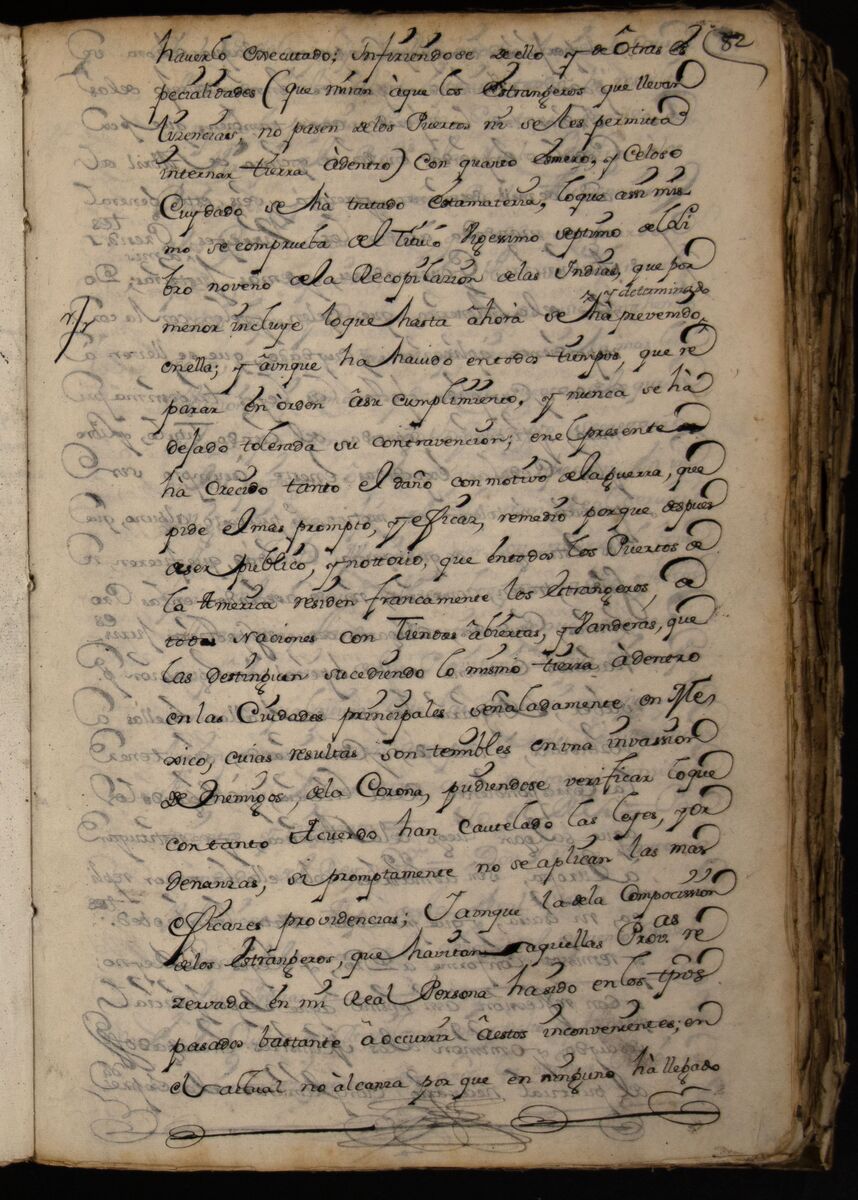 82
haverlo executado; Infiriendose de ello y de ôtras es
pecialidades (que miran àque los Estrangeros que llevan
lizencias, no pasen delos Puertos ni se les permita
internar tierra àdentro) con quanto esmero, y Celoso
Cuydado se hà tratado estamateria, loque assi mis
mo se comprueba del Titulo Vigessimo septimo del Li
bro noveno dela Recopilazion delas Indias, que por
menor incluye loque hasta âhora se hà prevenido,
y determinado
enella; y âunque ha havido entodos tiempos, que re
parar en òrden âsu cumplimiento, y nunca se hà
dejado tolerada su contravencion; enel presente
hà Crecido tanto el daño conmotivo dela guerra, que
pide elmas prompto, y eficaz, remedio porque despues
deser publico, y nottorio, que entodos los Puertos de
la America residen francamente los Estrangeros, de
todas Naciones con Tiendas âbiertas, y Vanderas, que
las destinguen sucediendo lo mismo tierra àdentro
en las Ciudades principales señaladamente en Me
xico, cuias resultas son temibles en una invassion
de Enemigos, dela Corona, pudiendose verificar loque
con tanto Acuerdo han Cautelado las leyes, y or
denanzas, si promptamente no se aplican las mas
eficazes providencias; Y aunque la dela Compocission
delos Estrangeros, que havitan aquellas Prov.as re
zervada en mi Real Persona ha sido en los tpõs
pasados bastante â occurrir âestos inconvenientes; en
el actual no àlcanza por que en ninguno hà llegado